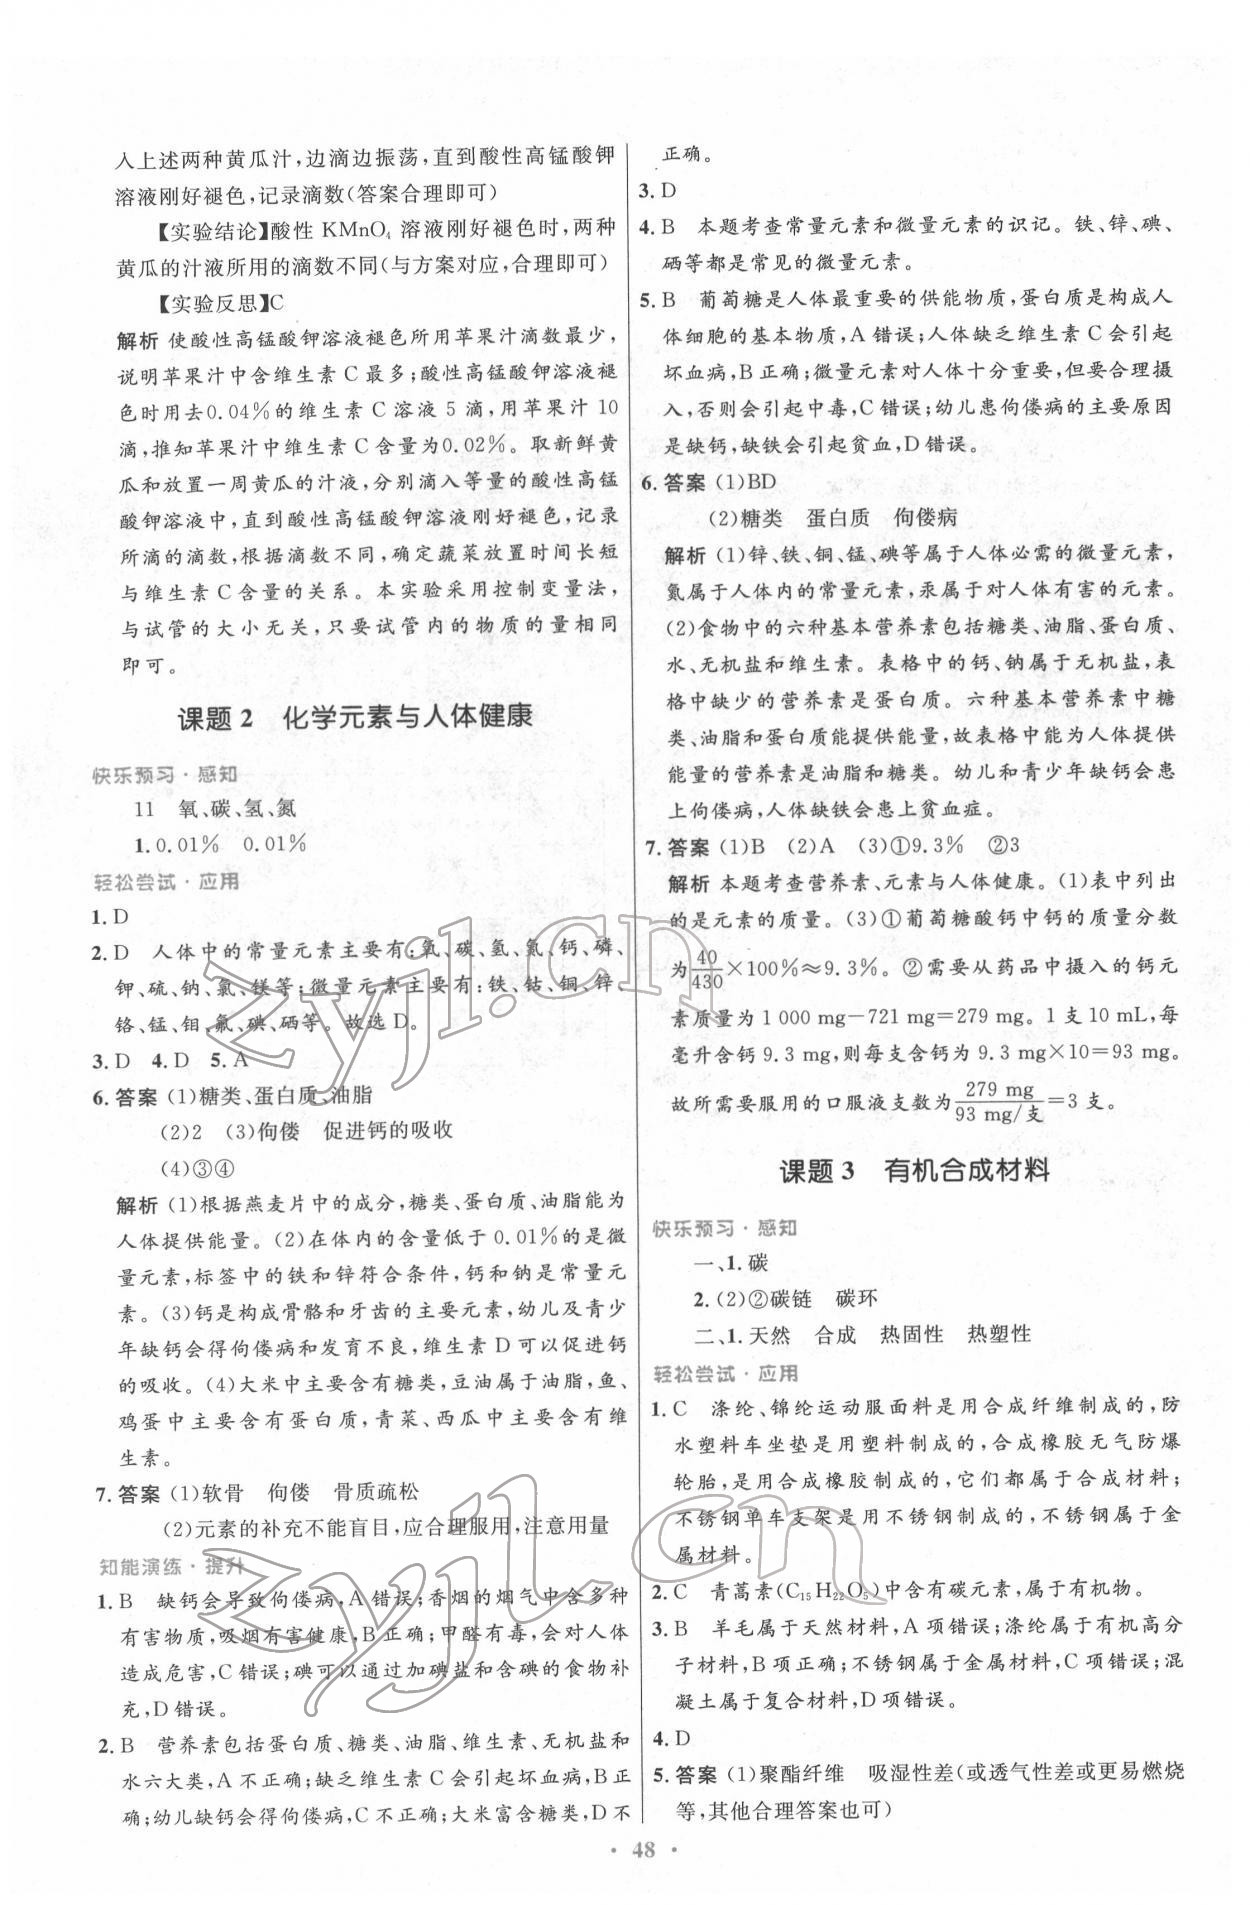 入上述两种黄瓜汁,边滴边振荡,直到酸性高锰酸钾
溶液刚好褪色,记录滴数(答案合理即可)
【实验结论】酸性 KMnO₄ 溶液刚好褪色时,两种
黄瓜的汁液所用的滴数不同(与方案对应,合理即可)
【实验反思】C
解析 使酸性高锰酸钾溶液褪色所用苹果汁滴数最少,
说明苹果汁中含维生素 C 最多;酸性高锰酸钾溶液褪
色时用去0.04%的维生素 C 溶液 5 滴,用苹果汁 10
滴,推知苹果汁中维生素 C 含量为0.02%。取新鲜黄
瓜和放置一周黄瓜的汁液,分别滴入等量的酸性高锰
酸钾溶液中,直到酸性高锰酸钾溶液刚好褪色,记录
所滴的滴数,根据滴数不同,确定蔬菜放置时间长短
与维生素 C 含量的关系。本实验采用控制变量法,
与试管的大小无关,只要试管内的物质的量相同
即可。
课题 2 化学元素与人体健康
快乐预习·感知
11 氧、碳、氢、氮
1.0.01% 0.01%
轻松尝试·应用
1.D
2.D 人体中的常量元素主要有:氧、碳、氢、氮、钙、磷、
钾、硫、钠、氯、镁等;微量元素主要有:铁、钴、铜、锌、
铬、锰、钼、氟、碘、硒等。故选 D。
3.D 4.D 5.A
6.答案 (1)糖类、蛋白质、油脂
(2)2 (3)佝偻 促进钙的吸收
(4)③④
解析 (1)根据燕麦片中的成分,糖类、蛋白质、油脂能为
人体提供能量。(2)在体内的含量低于 0.01%的是微
量元素,标签中的铁和锌符合条件,钙和钠是常量元
素。(3)钙是构成骨骼和牙齿的主要元素,幼儿及青少
年缺钙会得佝偻病和发育不良,维生素 D可以促进钙
的吸收。(4)大米中主要含有糖类,豆油属于油脂,鱼、
鸡蛋中主要含有蛋白质,青菜、西瓜中主要含有维
生素。
7.答案 (1)软骨 佝偻 骨质疏松
(2)元素的补充不能盲目,应合理服用,注意用量
知能演练·提升
1.B 缺钙会导致佝偻病,A 错误;香烟的烟气中含多种
有害物质,吸烟有害健康,B正确;甲醛有毒,会对人体
造成危害,C 错误;碘可以通过加碘盐和含碘的食物补
充,D错误。
2.B 营养素包括蛋白质、糖类、油脂、维生素、无机盐和
水六大类,A 不正确;缺乏维生素 C 会得坏血病,B正
确;幼儿缺钙会得佝偻病,C不正确;大米富含糖类,D不
正确。
3.D
4.B 本题考查常量元素和微量元素的识记。铁、锌、碘、
硒等都是常见的微量元素。
5.B 葡萄糖是人体最重要的供能物质,蛋白质是构成人
体细胞的基本物质,A 错误;人体缺乏维生素 C 会引起
坏血病,B正确;微量元素对人体十分重要,但要合理摄
入,否则会引起中毒,C错误;幼儿患佝偻病的主要原因
是缺钙,缺铁会引起贫血,D错误。
6.答案 (1)BD
(2)糖类 蛋白质 佝偻病
解析 (1)锌、铁、铜、锰、碘等属于人体必需的微量元素,
氮属于人体内的常量元素,汞属于对人体有害的元素。
(2)食物中的六种基本营养素包括糖类、油脂、蛋白质、
水、无机盐和维生素。表格中的钙、钠属于无机盐,故表
格中缺少的营养素是蛋白质。六种基本营养素中糖
类、油脂和蛋白质能提供能量,故表格中能为人体提供
能量的营养素是油脂和糖类。幼儿和青少年缺钙会患
上佝偻病,人体缺铁会患上贫血症。
7.答案 (1)B (2)A (3)①9.3% ②3
解析 本题考查营养素、元素与人体健康。(1)表中列出
的是元素的质量。(3)①葡萄糖酸钙中钙的质量分数
为40/430×100%≈9.3%。②需要从药品中摄入的钙元
素质量为 1 000 mg−721 mg=279 mg。1 支 10 mL,每
毫升含钙 9.3 mg,则每支含钙为 9.3 mg×10=93 mg。
故所需要服用的口服液支数为279 mg/93 mg/支=3 支。
课题 3 有机合成材料
快乐预习·感知
一、1.碳
2.(2)②碳链 碳环
二、1.天然 合成 热固性 热塑性
轻松尝试·应用
1.C 涤纶、锦纶运动服面料是用合成纤维制成的,防
水塑料车坐垫是用塑料制成的,合成橡胶无气防爆
轮胎,是用合成橡胶制成的,它们都属于合成材料;
不锈钢单车支架是用不锈钢制成的,不锈钢属于金
属材料。
2.C 青蒿素(C₁₅H₂₂O₅)中含有碳元素,属于有机物。
3.B 羊毛属于天然材料,A项错误;涤纶属于有机高分
子材料,B项正确;不锈钢属于金属材料,C项错误;混
凝土属于复合材料,D项错误。
4.D
5.答案 (1)聚酯纤维 吸湿性差(或透气性差或更易燃烧
等,其他合理答案也可)
· 48 ·
zyjl.cn
zyjl.cn